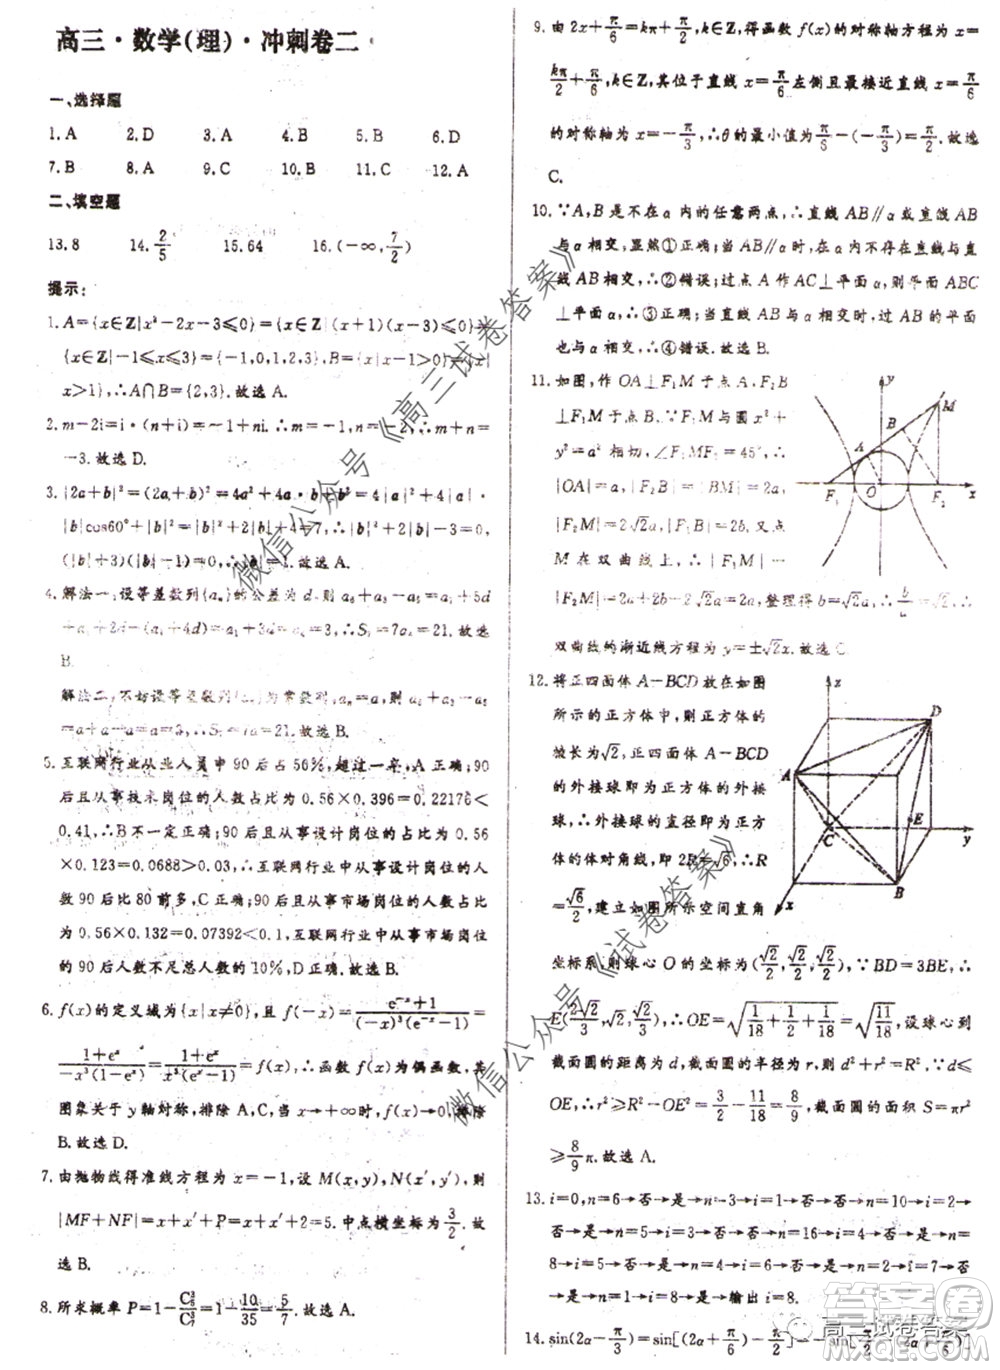 高三·数学(理)·冲刺卷二
一、选择题
1.A 2.D 3.A 4.B 5.B 6.D
7.B 8.A 9.C 10.B 11.C 12.A
二、填空题
13.8 14.2/5 15.64 16.(-∞,7/2)
提示:
1.A={x∈Z|x²-2x-3⩽0}={x∈Z|(x+1)(x-3)⩽0}=
{x∈Z|-1⩽x⩽3}={-1,0,1,2,3},B={x|x-1>0}={x|
x>1},∴A∩B={2,3}.故选A.
2.m-2i=i·(n+i)=-1+ni.∴m=-1,n=-2,∴m+n=
-3.故选D.
3.|2a+b|²=(2a+b)²=4a²+4a·b+b²=4|a|²+4|a|
|b|cos60°+|b|²=|b|²+2|b|+4=7,∴|b|²+2|b|-3=0,
(|b|+3)(|b|-1)=0,∴|b|=1.故选A.
4.解法一:设等差数列{aₙ}的公差为d,则a₆+a₃-a₅=a₁+5d
+a₁+2d-(a₁+4d)=a₁+3d=a₄=3,∴S₇=7a₄=21.故选
B.
解法二:不妨设等差数列{aₙ}为常数列,aₙ=a,则a₆+a₃-
a₅=a=3,∴S₇=7a=21.故选B.
5.互联网行业从业人员中90后占56%,超过一半,A正确;90
后从事技术岗位的人数占总人数的0.56×0.396=0.22176<
0.41,∴B不一定正确;90后从事设计岗位的人数占比0.56
×0.123=0.0688>0.03,∴互联网行业中从事设计岗位的人
数90后比80前多,C正确;90后从事市场岗位的人数占比
为0.56×0.132=0.07392<0.1,互联网行业中从事市场岗
位的90后人数不足总人数的10%,D正确.故选B.
6.f(x)的定义域为{x|x≠0},且f(-x)=(e⁻ˣ+1)/((-x)³(e⁻ˣ-1))=
(1+eˣ)/(-x³(1-eˣ))=(eˣ+1)/(x³(eˣ-1))=f(x),∴f(x)为偶函数,其
图象关于y轴对称,排除A,C;当x→+∞时,f(x)→0,排除
B.故选D.
7.由抛物线得准线方程为x=-1,设M(x,y),N(x′,y′),则
|MF+NF|=x+x′+P=x+x′+2=5.中点横坐标为3/2.故
选B.
8.所求概率P=1-C₅³/C₇³=1-10/35=5/7.故选A.
9.由2x+π/6=kπ+π/2,k∈Z,得函数f(x)的对称轴方程为x=
kπ/2+π/6,k∈Z,其位于直线x=π/6左侧且最接近直线x=π/6
的对称轴为x=-π/3,∴θ的最小值为π/6-(-π/3)=π/2.故选
C.
10.∵A,B是不在α内的任意两点,∴直线AB∥α或直线AB
与α相交,显然①正确;当直线AB∥α时,在α内不存在直线与直
线AB相交,∴②错误;过点A作AC⊥平面α,则平面ABC
⊥平面α,∴③正确;当直线AB与α相交时,过AB的平面
也与α相交,∴④错误.故选B.
11.如图,作OA⊥F₁M于点A,F₂B
⊥F₁M于点B,∵F₁M与圆x²+
y²=a²相切,∠F₁MF₂=45°,∴
|OA|=a,|F₂B|=|BM|=2a,
|F₂M|=2√2a,|F₁B|=2b,又点
M在双曲线上,∴|F₁M|-
|F₂M|=2a+2b-2√2a=2a,整理得b=√2a,∴b/a=√2,∴
双曲线的渐近线方程为y=±√2x.故选C.
y
M
B
A
F₁
O
F₂
x
12.将正四面体A-BCD放在如图
所示的正方体中,则正方体的
棱长为√2,正四面体A-BCD
的外接球即为正方体的外接
球,∴外接球的直径即为正方
体的体对角线,即2R=√6,∴R
=√6/2,建立如图所示空间直角
坐标系,则球心O的坐标为(√2/2,√2/2,√2/2),∵BD=3BE,∴
E(2√2/3,√2,√2/3),∴OE=√(1/18+1/2+1/18)=√(11/18),设球心到
截面圆的距离为d,截面圆的半径为r,则d²+r²=R²,∵d⩽
OE,∴r²⩾R²-OE²=3/2-11/18=8/9,截面圆的面积S=πr²
⩾8/9π.故选A.
z
D
A
E
C
y
B
x
13.i=0,n=6→否→n=3→i=1→否→n=10→i=2→
否→是→n=5→i=3→否→n=16→i=4→否→是→n=8→
i=5→否→是→n=4→i=6→否→是→n=2→i=7→否
→是→n=1→i=8→是→输出i=8.
14.sin(2α-π/3)=sin[(2α+π/6)-π/2]=-sin
微信公众号《高三试卷答案》
微信公众号《试卷答案》
高三试卷答案
答案圈